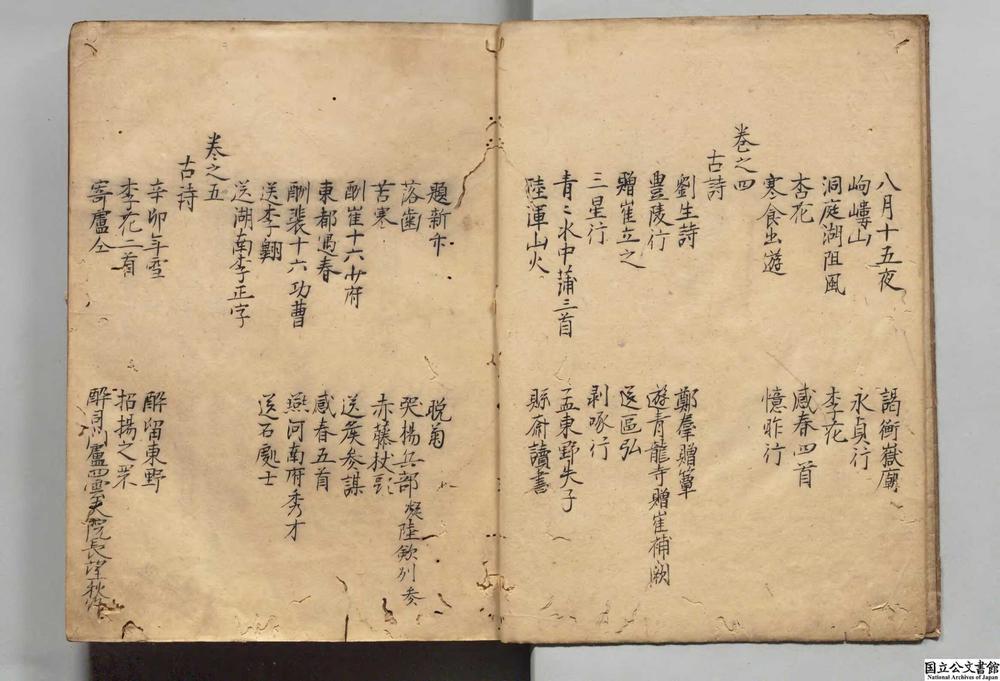 八月十五夜　謁衡嶽廟
岣嶁山　永貞行
洞庭湖阻風　李花
杏花　感春四首
寒食出遊　憶昨行
卷之四
古詩
劉生詩　鄭羣贈簟
豊陵行　遊青龍寺贈崔補闕
贈崔立之　送區弘
三星行　剥啄行
青〻水中蒲三首　孟東野失子
陸渾山火　縣齋讀書
題新竹　晚菊
落歯　哭揚兵部凝陸歙州参
苦寒　赤藤杖歌
酬崔十六少府　送侯参謀
東都遇春　感春五首
酬裴十六功曹　燕河南府秀才
送李翺　送石處士
送湖南李正字
卷之五
古詩
辛卯年雪　醉留東野
李花二首　招揚之罘
寄盧仝　酬司門盧四雲夫院長望秋作
国立公文書館
National Archives of Japan